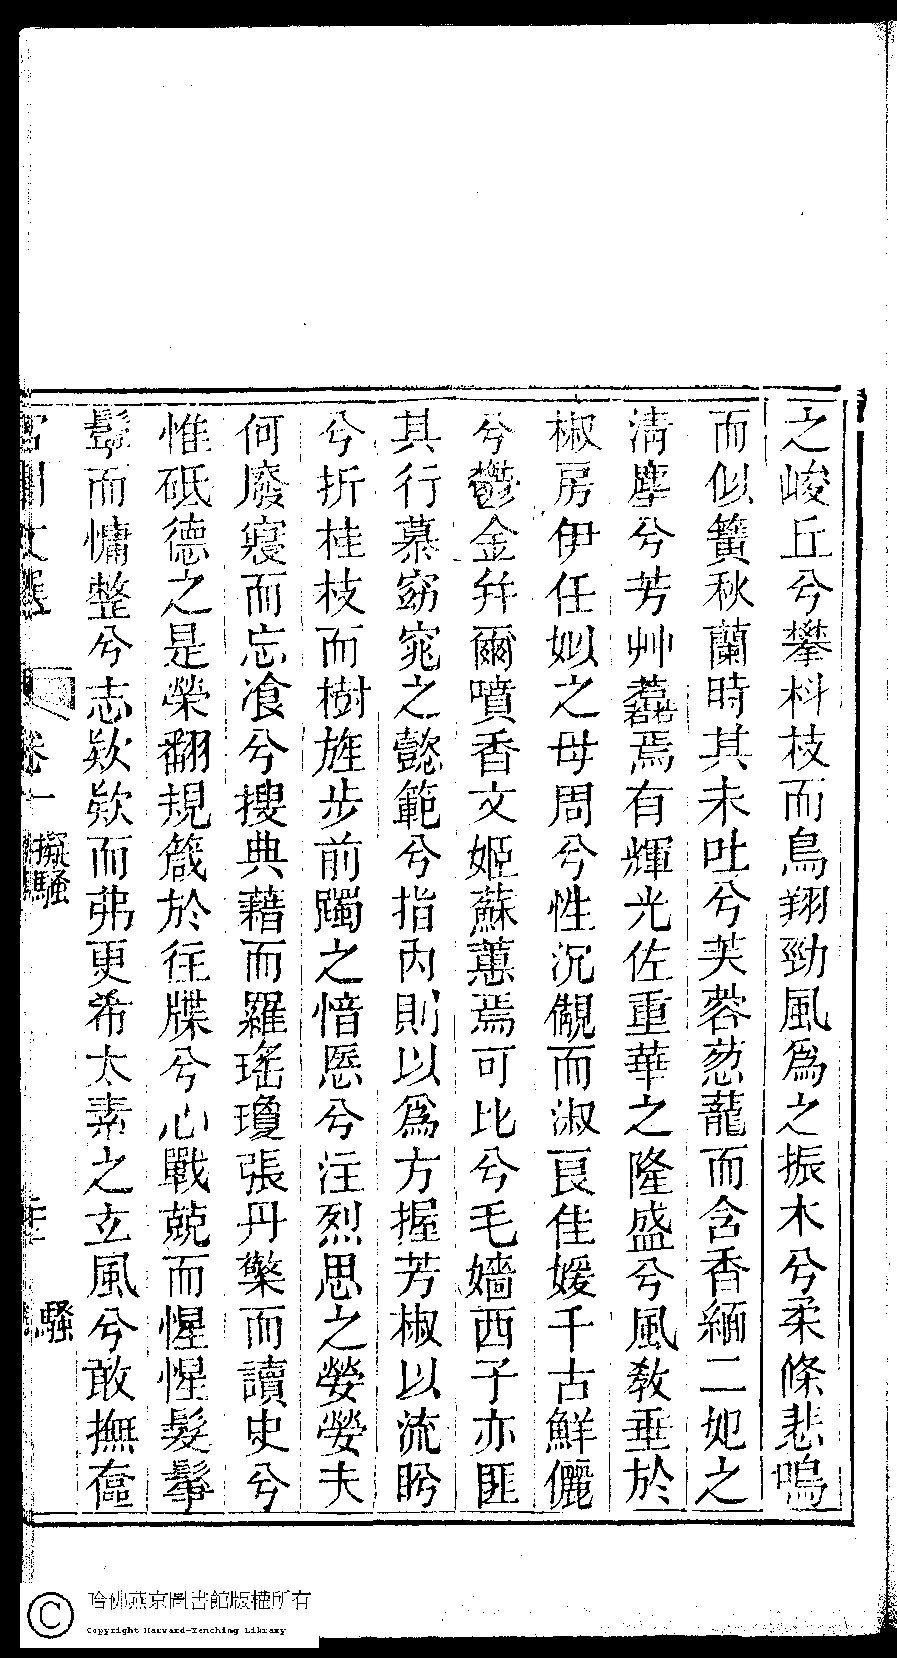 之峻丘兮攀枓枝而鳥翔勁風爲之振木兮柔條悲鳴
而似簧秋蘭時其未吐兮芙蓉葱蘢而含香緬二妃之
清塵兮芳艸藹焉有輝光佐重華之隆盛兮風教垂於
椒房伊任姒之母周兮性沉儭而淑良佳媛千古鮮儷
兮鬱金幷爾噴香文姬蘇蕙焉可比兮毛嬙西子亦匪
其行慕窈窕之懿範兮指內則以爲方握芳椒以流盻
兮折桂枝而樹旌步前躅之愔愿兮注烈思之嫈嫈夫
何廢寢而忘飡兮搜典藉而羅瑤瓊張丹檠而讀史兮
惟砥德之是榮翻規箴於往牒兮心戰兢而惺惺髮髼
鬆而慵整兮志欵欵而弗更希太素之玄風兮敢撫
宮閨文選
卷一
擬騷
騷
哈佛燕京圖書館版權所有
Copyright Harvard-Yenching Library